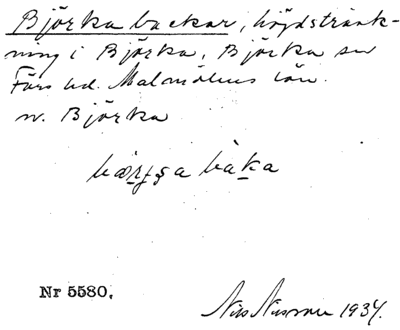 Björka backar, höjdsträck-
ning i Björka, Björka sn
Färs hd. Malmöhus län.
n. Björka
bækka
Nr 5580.
Nils Nilsson 1934.